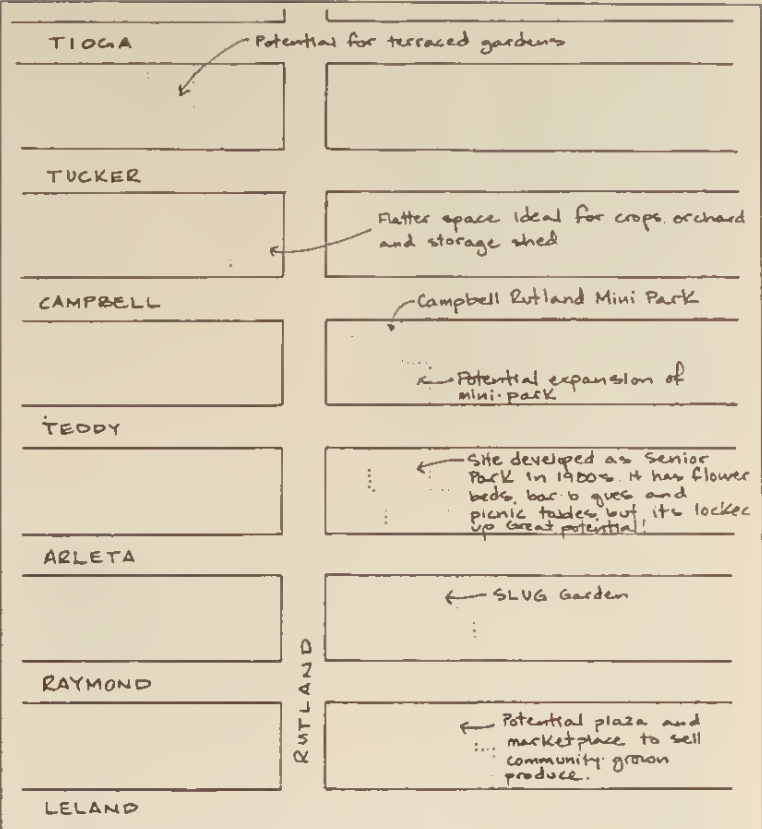 TIOGA
Potential for terraced gardens
TUCKER
Flatter space ideal for crops, orchard
and storage shed
CAMPBELL
Campbell Rutland Mini Park
Potential expansion of
mini-park
TEDDY
Site developed as Senior
Park in 1980s. It has flower
beds, bar-b-ques and
picnic tables, but it's locked
up. Great potential!
ARLETA
SLUG Garden
RAYMOND
RUTLAND
Potential plaza and
marketplace to sell
community-grown
produce.
LELAND